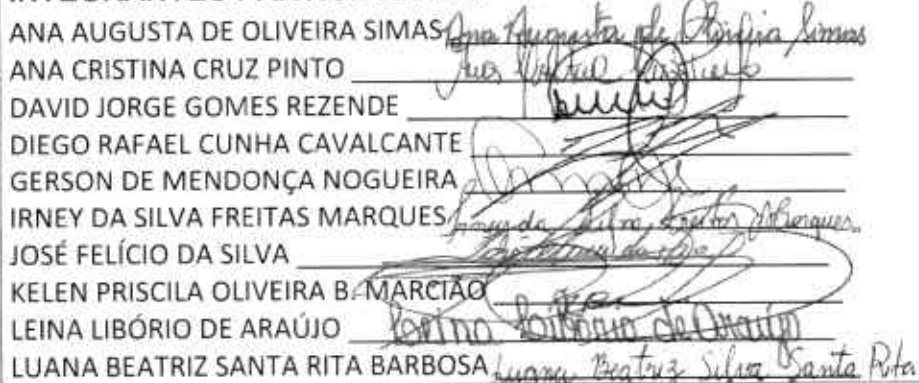 ANA AUGUSTA DE OLIVEIRA SIMAS Ana Augusta de Oliveira Simas
ANA CRISTINA CRUZ PINTO
DAVID JORGE GOMES REZENDE
DIEGO RAFAEL CUNHA CAVALCANTE
GERSON DE MENDONÇA NOGUEIRA
IRNEY DA SILVA FREITAS MARQUES Irney da Silva Freitas Marques
JOSÉ FELÍCIO DA SILVA
KELEN PRISCILA OLIVEIRA B. MARCIÃO
LEINA LIBÓRIO DE ARAÚJO Leina Libório de Araújo
LUANA BEATRIZ SANTA RITA BARBOSA Luana Beatriz Silva Santa Rita